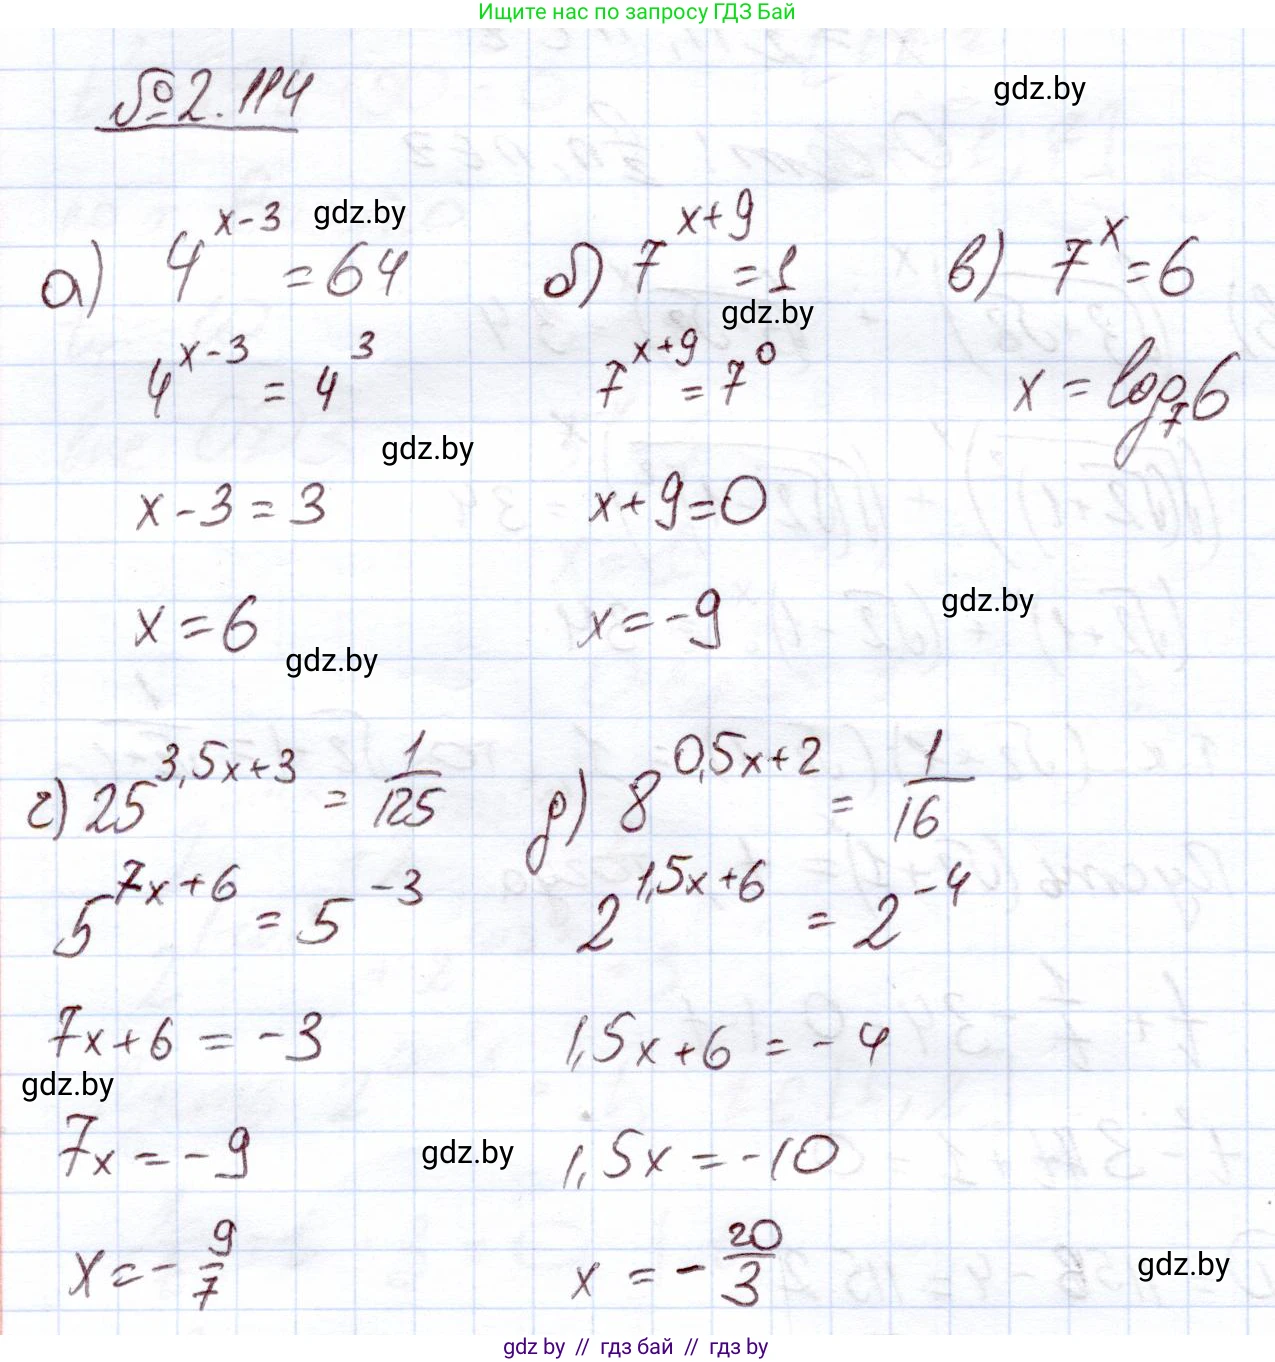 Ищите нас по запросу ГДЗ Бай
№2.114
gdz.by
а) 4^{x-3} = 64
gdz.by
б) 7^{x+9} = 1
в) 7^x = 6
gdz.by
4^{x-3} = 4^3
7^{x+9} = 7^0
x = log_7 6
gdz.by
x - 3 = 3
x + 9 = 0
gdz.by
x = 6
x = -9
gdz.by
г) 25^{3,5x+3} = 1/125
д) 8^{0,5x+2} = 1/16
5^{7x+6} = 5^{-3}
2^{1,5x+6} = 2^{-4}
7x + 6 = -3
1,5x + 6 = -4
gdz.by
7x = -9
gdz.by
1,5x = -10
x = -9/7
x = -20/3
gdz.by
gdz by // гдз бай // гдз by